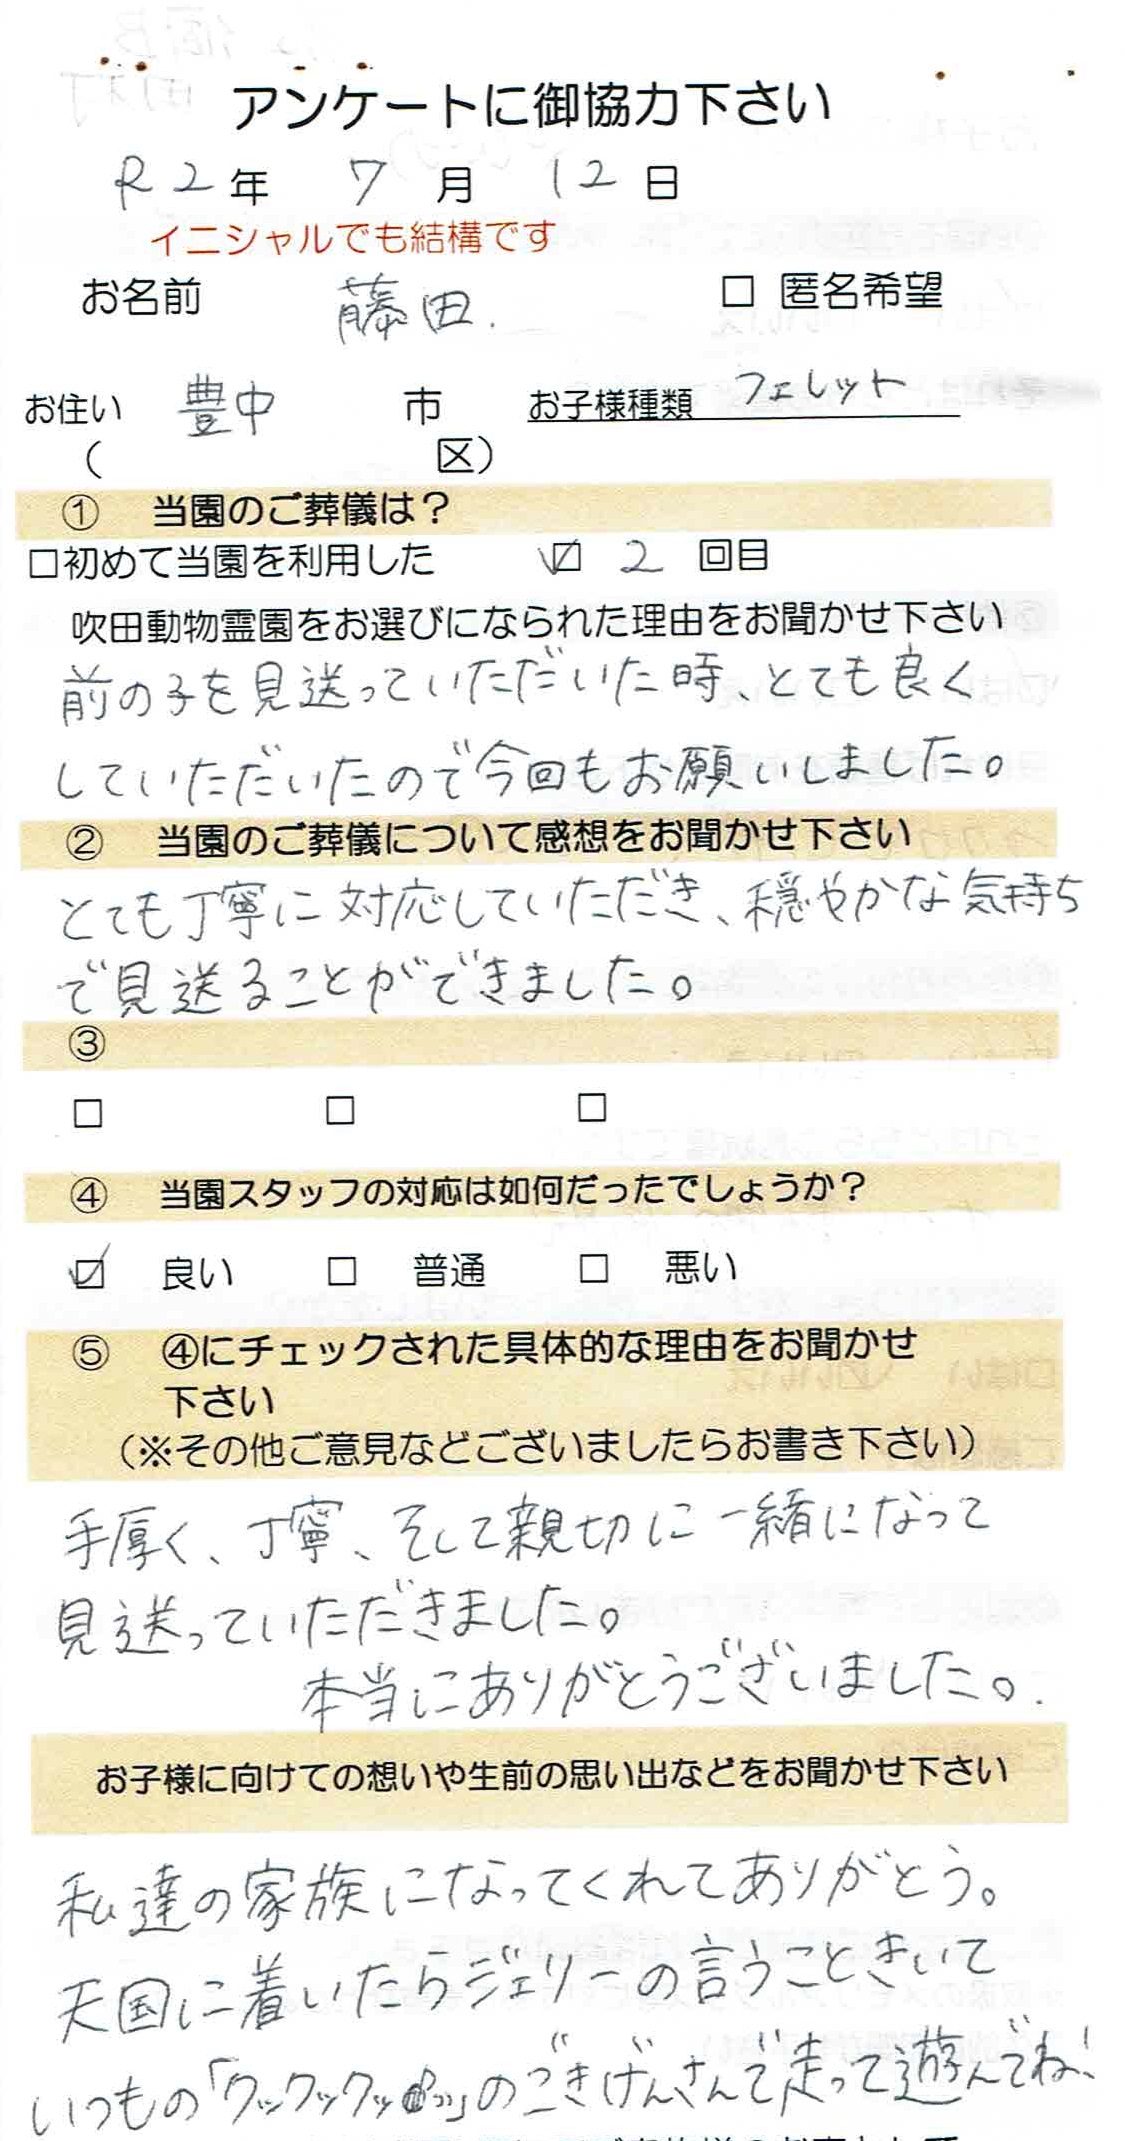 アンケートに御協力下さい
R2年 7月 12日
イニシャルでも結構です
お名前 藤田. □ 匿名希望
お住い 豊中 市 お子様種類 フェレット
( 区)
① 当園のご葬儀は?
□初めて当園を利用した ☑ 2 回目
吹田動物霊園をお選びになられた理由をお聞かせ下さい
前の子を見送っていただいた時、とても良く
していただいたので今回もお願いしました。
② 当園のご葬儀について感想をお聞かせ下さい
とても丁寧に対応していただき、穏やかな気持ち
で見送ることができました。
③
□ □ □
④ 当園スタッフの対応は如何だったでしょうか?
☑ 良い □ 普通 □ 悪い
⑤ ④にチェックされた具体的な理由をお聞かせ
下さい
(※その他ご意見などございましたらお書き下さい)
手厚く、丁寧、そして親切に一緒になって
見送っていただきました。
本当にありがとうございました。.
お子様に向けての想いや生前の思い出などをお聞かせ下さい
私達の家族になってくれてありがとう。
天国に着いたらジェリーの言うこときいて
いつもの「クックックッ」のごきげんさんで走って遊んでね!